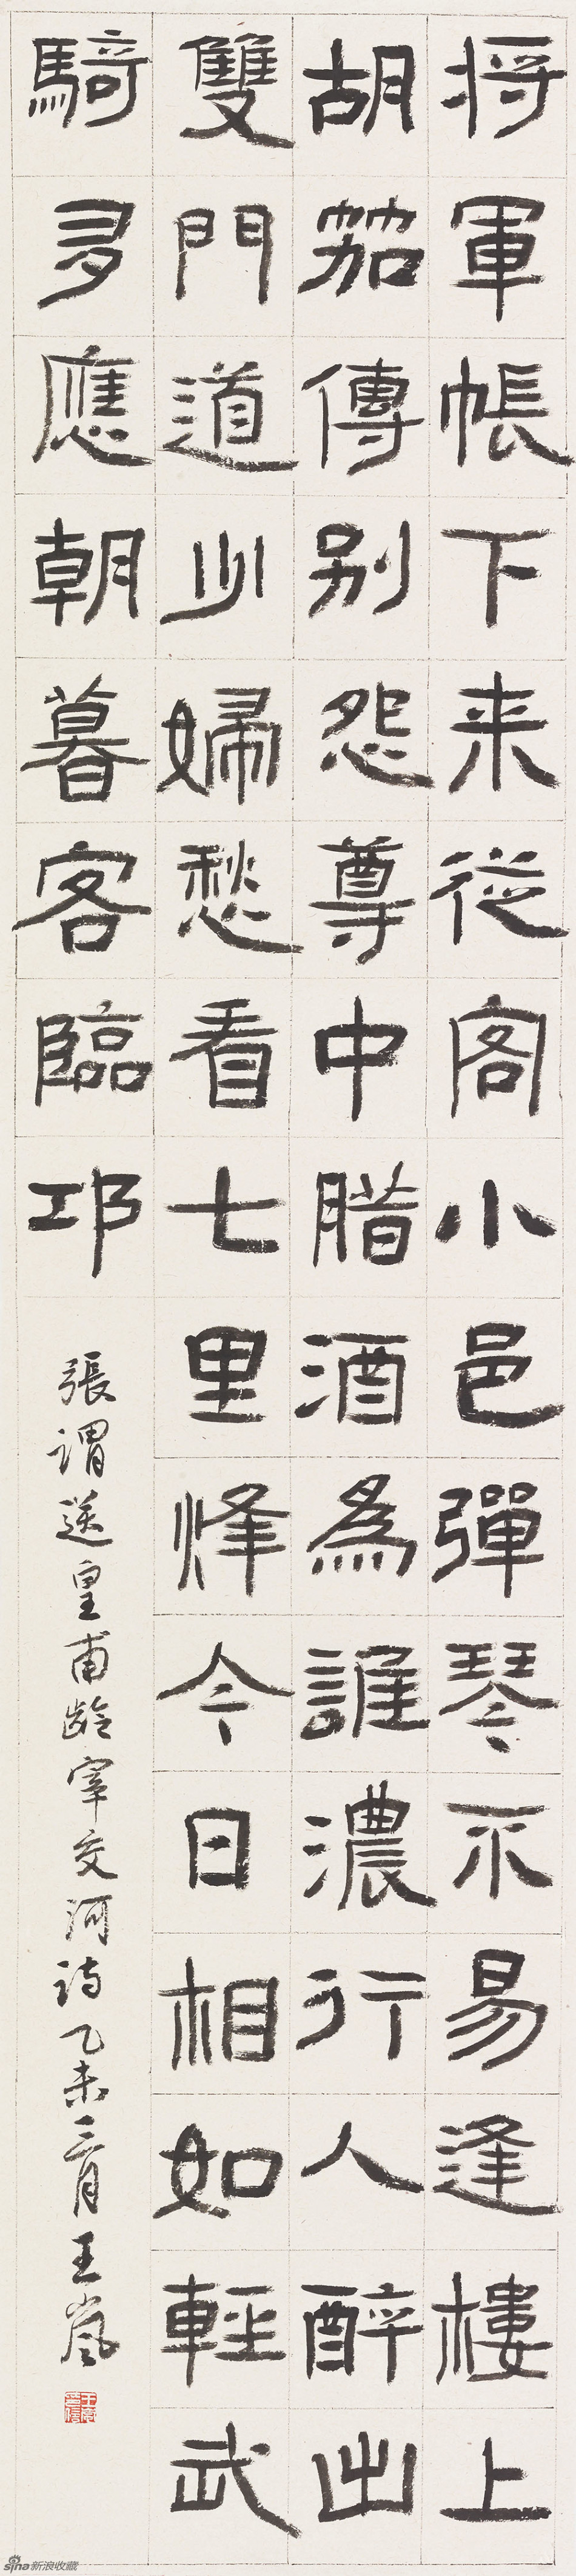 将軍帳下来從客小邑彈琴不易逢樓上
胡笳傳别怨尊中腊酒為誰濃行人醉出
雙門道少婦愁看七里烽今日相如輕武
騎多應朝暮客臨邛
張謂送皇甫齡宰交河詩乙未三月王嵐
sina新浪收藏